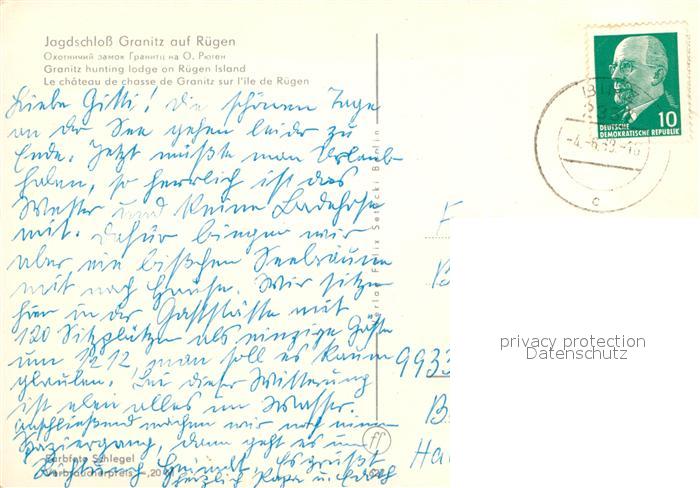 Jagdschloß Granitz auf Rügen
Охотничий замок Гранитц на О. Рюген
Granitz hunting lodge on Rügen Island
Le château de chasse de Granitz sur l'île de Rügen
Liebe Gitti! Die schönen Tage
an der See gehen leider zu
Ende. Jetzt müßte man Urlaub
haben, so herrlich ist das
Wetter und keine Badehose
mit. Dafür bringen wir
aber ein bißchen Seebräune
mit nach Hause. Wir sitzen
hier in der Gaststätte mit
120 Sitzplätzen als einzige Gäste
um 1/2 12, man soll es kaum
glauben. Bei dieser Witterung
ist eben alles im Wasser.
Anschließend machen wir noch einen
Spaziergang, dann geht es in
Richtung Heimat. Es grüßt
herzlich Papa u.
Farbfoto Schlegel
Verbraucherpreis -,20
Verlag Felix Setecki Berlin
DEUTSCHE
DEMOKRATISCHE REPUBLIK
10
c
9933
privacy protection
Datenschutz